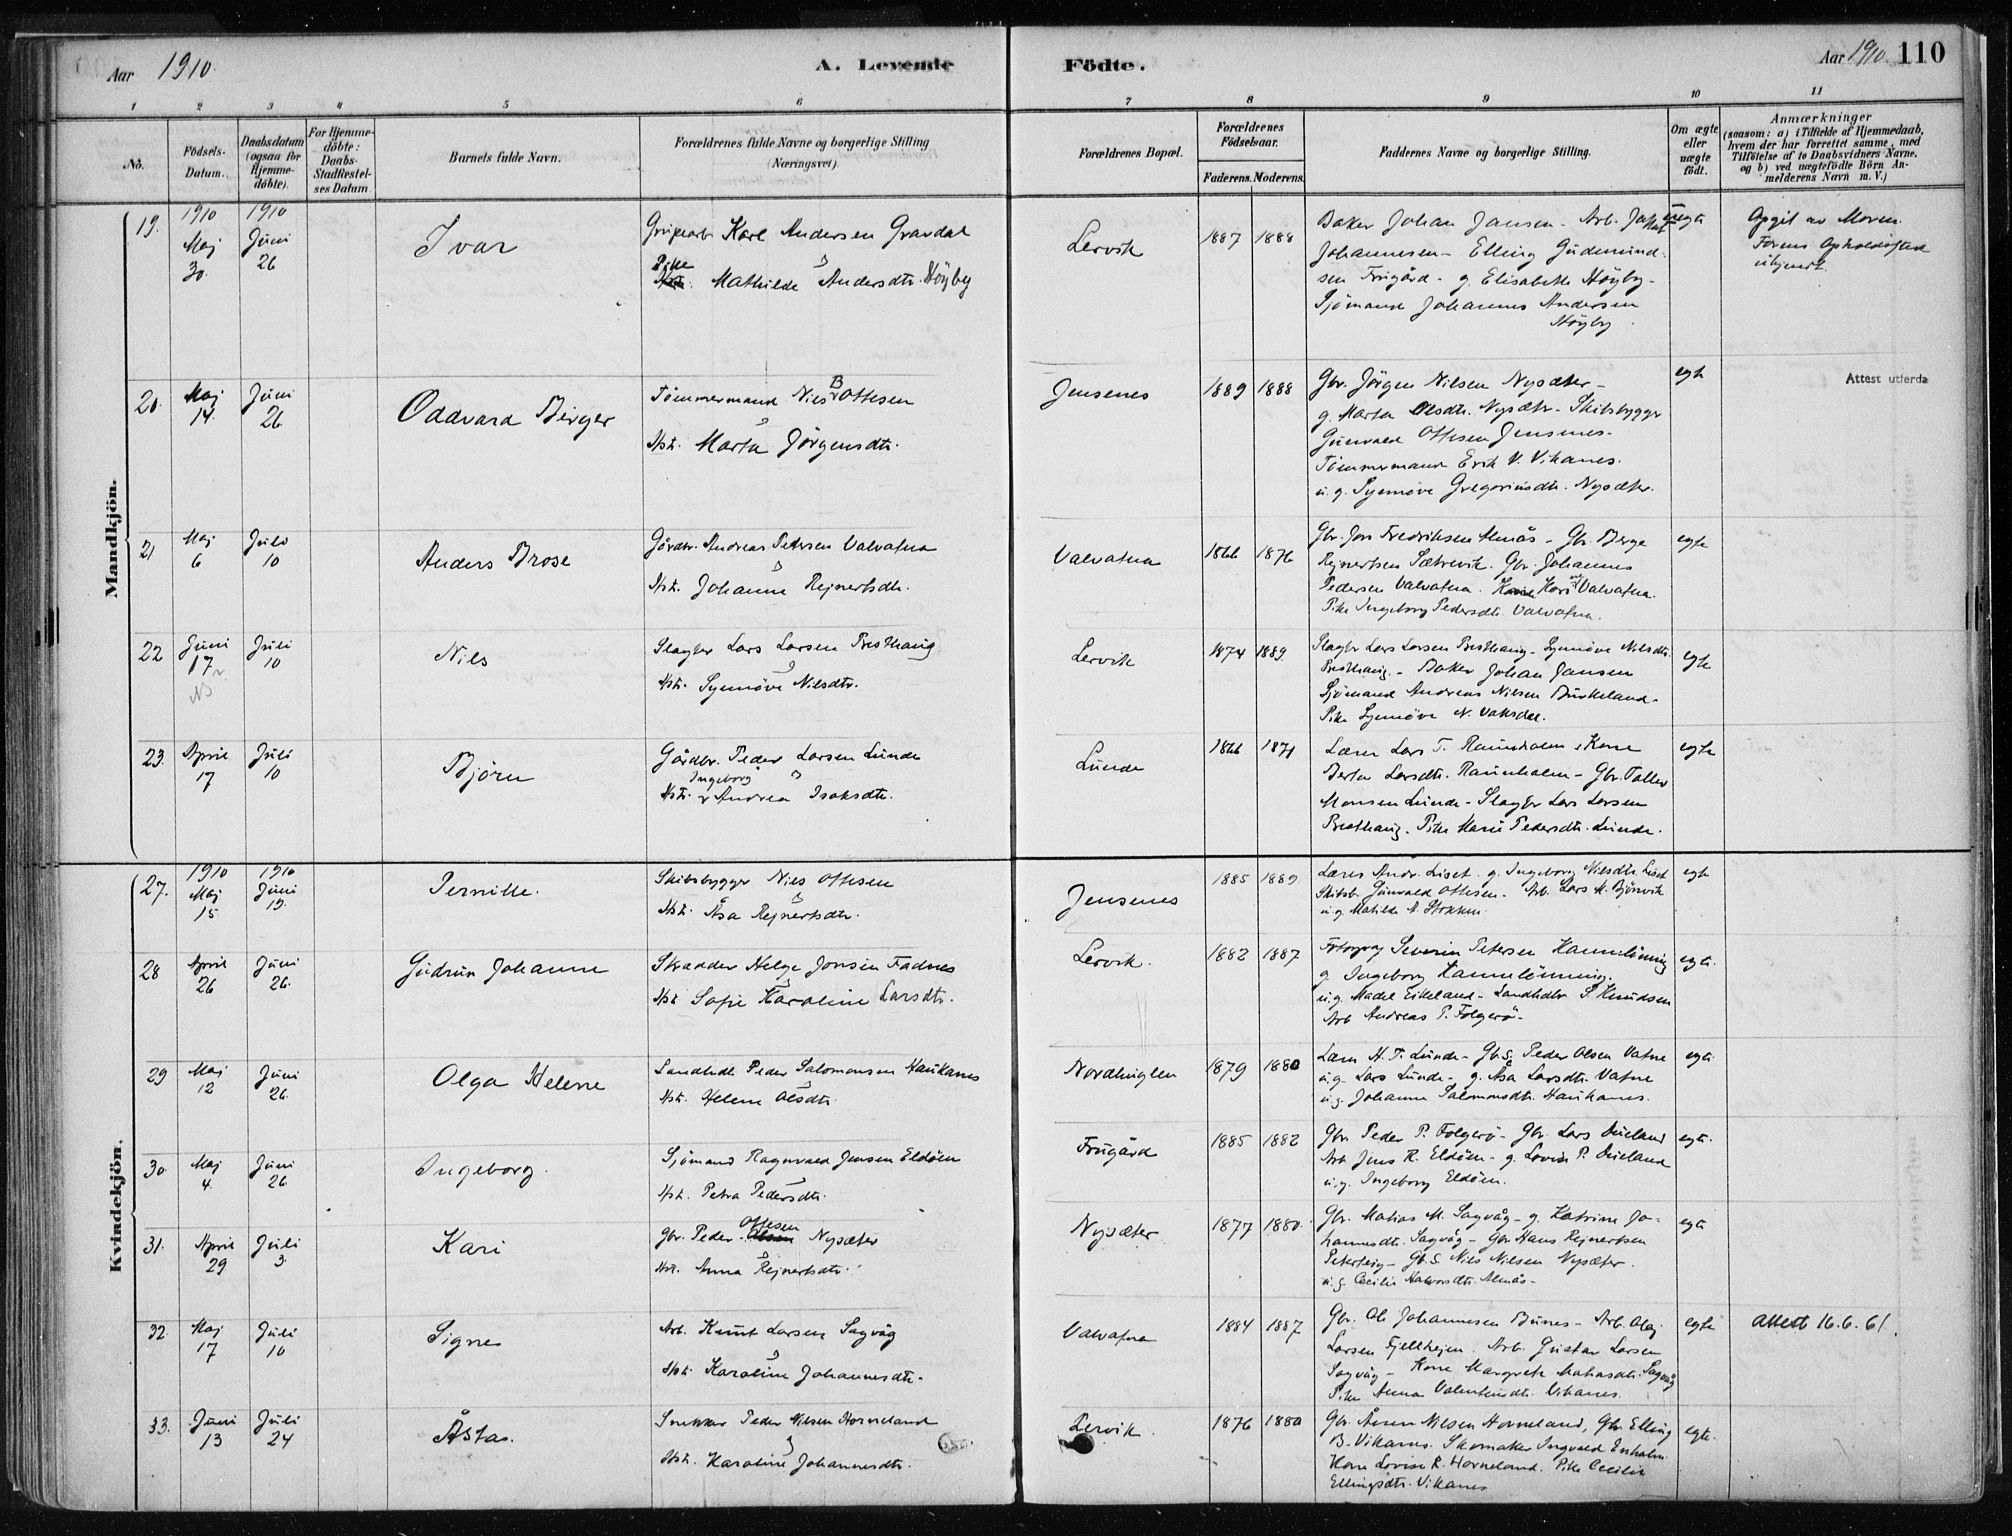 Aar 1910.
A. Levende Födte.
Aar 1910. 110
1 2 3 4 5 6 7 8 9 10 11
No.
Födsels-Datum.
Daabsdatum (ogsaa for Hjemme-döbte).
For Hjemme-döbte: Daabs-Stadfæstel-ses Datum
Barnets fulde Navn.
Forældrenes fulde Navne og borgerlige Stilling (Næringsvei).
Forældrenes Bopæl.
Forældrenes Födselsaar.
Faderens. Moderens.
Faddernes Navne og borgerlige Stilling.
Om ægte eller uægte födt.
Anmærkninger (saasom: a) i Tilfælde af Hjemmedaab, hvem der har forrettet samme, med Tilföielse af to Daabsvidners Navne, og b) ved uægtefödte Börn An-melderens Navn m. V.)
Mandkjön.
19. 1910 Maj 30. 1910 Juni 26
Ivar
Karl Andersen Gravdal
Pike Mathilde Andersdtr. Höyby
Lervik 1887 1888
Baker Johan Jansen - Arb. Jakob
Johannesen - Elling Gudmund-
sen Frugård - g. Elisabeth Höyby -
Sjömand Johannes Andersen
Höyby.
uegte
Opgit av Moren.
Farens Opholdssted
ukjendt.
20. Maj 14. Juni 26
Oddvard Birger
Tömmermand Nils B Ottesen
Hst. Marta Jörgensdtr.
Jensenes 1889 1888
Gbr. Jörgen Nilsen Nysæter -
g. Marta Olsdtr. Nysæter - Skibsbygger
Gunvald Ottesen Jensenes -
Tömmermand Erik V. Vikanes.
u. g. Synnöve Gregoriusdtr. Nysæter.
egte
Attest utferda
21 Maj 6 Juli 10
Anders Brose
Gårdbr. Andreas Petersen Valvatna
Hst. Johanne Rejnertsdtr.
Valvatna 1866 1876
Gbr. Jens Fredriksen Almås - Gbr. Berge
Rejnertsen Sætrevik. Gbr. Johannes
Pedersen Valvatna. Kone Kari Valvatna.
Pike Ingeborg Pedersdtr. Valvatna.
egte
22 Juni 17 Juli 10
Nils
Slagter Lars Larsen Presthaug
Hst. Synnöve Nilsdtr.
Lervik 1874 1889.
Slagtr Lars Larsen Presthaug - Synnöve Nilsdtr.
Presthaug. - Baker Johan Jansen
Sjömand Andreas Nilsen Birkeland -
Pike Synnöve N. Vaksdal.
egte
23. April 17 Juli 10
Björn
Gårdbr. Peder Larsen Lunde
Ingeborg
Hst. Andrea Isaksdtr.
Lunde 1866 1871
Lærer Lars T. Raunholm, Kone
Berta Larsdtr. Raunholm - Gbr. Tollev
Monsen Lunde - Slagtr Lars Larsen
Presthaug. Pike Marie Pedersdtr. Lunde.
egte
Kvindekjön.
27. 1910 Maj 15 1910 Juni 19.
Pernille.
Skibsbygger Nils Ottesen
Hst. Åsa Rejnertsdtr.
Jensenes 1885 1889
Lærer Andr. Liset. g. Ingeborg Nilsdtr. Liset
Skibsb. Gunvald Ottesen - Arb. Lars K. Björsvik
u. g. Matilde N. Stokken.
egte
28 April 26 Juni 26.
Gudrun Johanne
Skrædder Helge Jonsen Fadnes
Hst. Sofie Karoline Larsdtr.
Lervik. 1882 1887
Fotograf Severin Petersen Kannelönning
g. Ingeborg Kannelönning.
u. g. Madel Eikeland - Landhdlr. S. Knudsen
Arb Andreas P. Folgerö -
egte.
29 Maj 12 Juni 26.
Olga Helene
Landhdl. Peder Salomonsen Haukanes
Hst. Helene Olsdtr.
Nordhuglen 1879 1880
Lærer H. T. Lunde - Gbr. S. Peder Olsen Vatne
u. g. Lars Lunde - g. Åsa Larsdtr. Vatne
u. g. Johanne Salomonsdtr. Haukanes.
egte
30. Maj 4. Juni 26.
Ingeborg.
Sjömand Ragnvald Jensen Eldöen
Hst. Petra Pedersdtr.
Frugård 1885 1882
Gbr. Peder P. Folgerö - Gbr. Lars Dueland
Arb Jens R. Eldöen - g. Lovise P. Dueland
u. g. Ingeborg Eldöen.
egte.
31. April 29 Juli 3.
Kari
Gbr. Peder Ottesen Nysæter
Hst. Anna Rejnertsdtr.
Nysæter 1877 1880.
Gbr. Matias M. Sagvåg - g. Katrine Jo-
hannesdtr. Sagvåg - Gbr Hans Rejnertsen
Peterteig - Gbr. S. Nils Nilsen Nysæter.
u. g. Cecilie Halvorsdtr. Almås -
egte
32. Maj 17 Juli 10
Signe
Arb. Knut Larsen Sagvåg
Hst. Karoline Johannesdtr.
Valvatna 1884 1887
Gbr. Ole Johannesen Bunes - Arb. Olaj
Larsen Fjellhejm. Arb. Gustav Larsen
Sagvåg - Kone Margrete Matiasdtr. Sagvåg
Pike Anna Valentinsdtr. Vikanes.
egte
Attest 16.6.61.
33. Juni 13 Juli 24
Åsta.
Snekker Peder Nilsen Horneland
Hst. Karoline Johannesdtr.
Lervik. 1876 1880
Gbr. Ånen Nilsen Horneland, Gbr. Elling
B. Vikanes. Skomaker Ingvald Enholm.
Kone Lovise R. Horneland. Pike Cecilie
Ellingsdtr. Vikanes
egte.